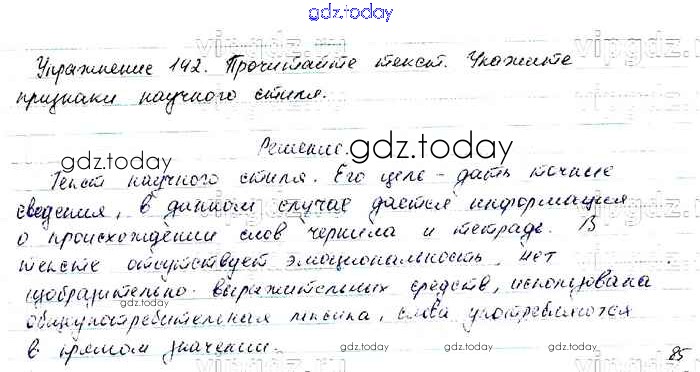 gdz.today
Упражнение 142. Прочитайте текст. Укажите
признаки научного стиля.
Решение.
gdz.today
gdz.today
Текст научного стиля. Его цель - дать точные
сведения, в данном случае дается информация
о происхождении слов чернила и тетрадь. В
тексте отсутствует эмоциональность, нет
изобразительно-выразительных средств, использована
общеупотребительная лексика, слова употребляются
в прямом значении.
gdz.today
gdz.today
gdz.today
gdz.today
85
vipgdz.ru